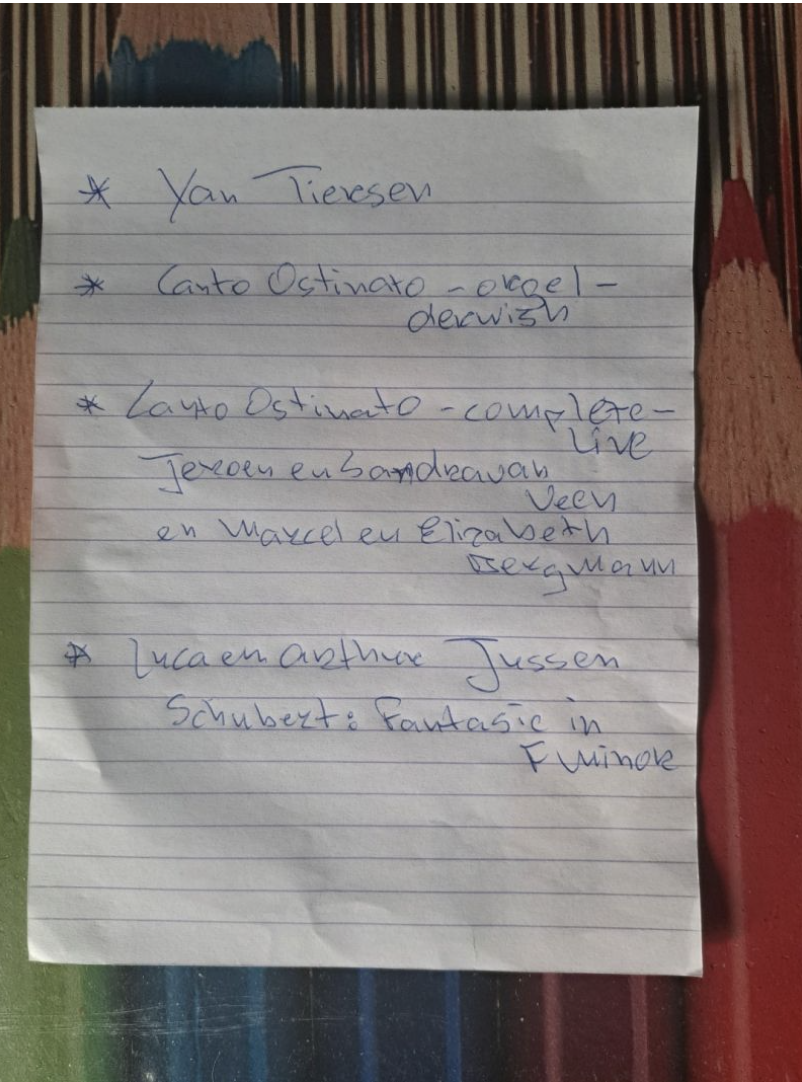 * Yan Tiersen
* Canto Ostinato - orgel -
derwish
* Canto Ostinato - complete -
Live
Jeroen en Sandra van
Veen
en Marcel en Elizabeth
Bergmann
* Luca en Arthur Jussen
Schubert: Fantasie in
F minor